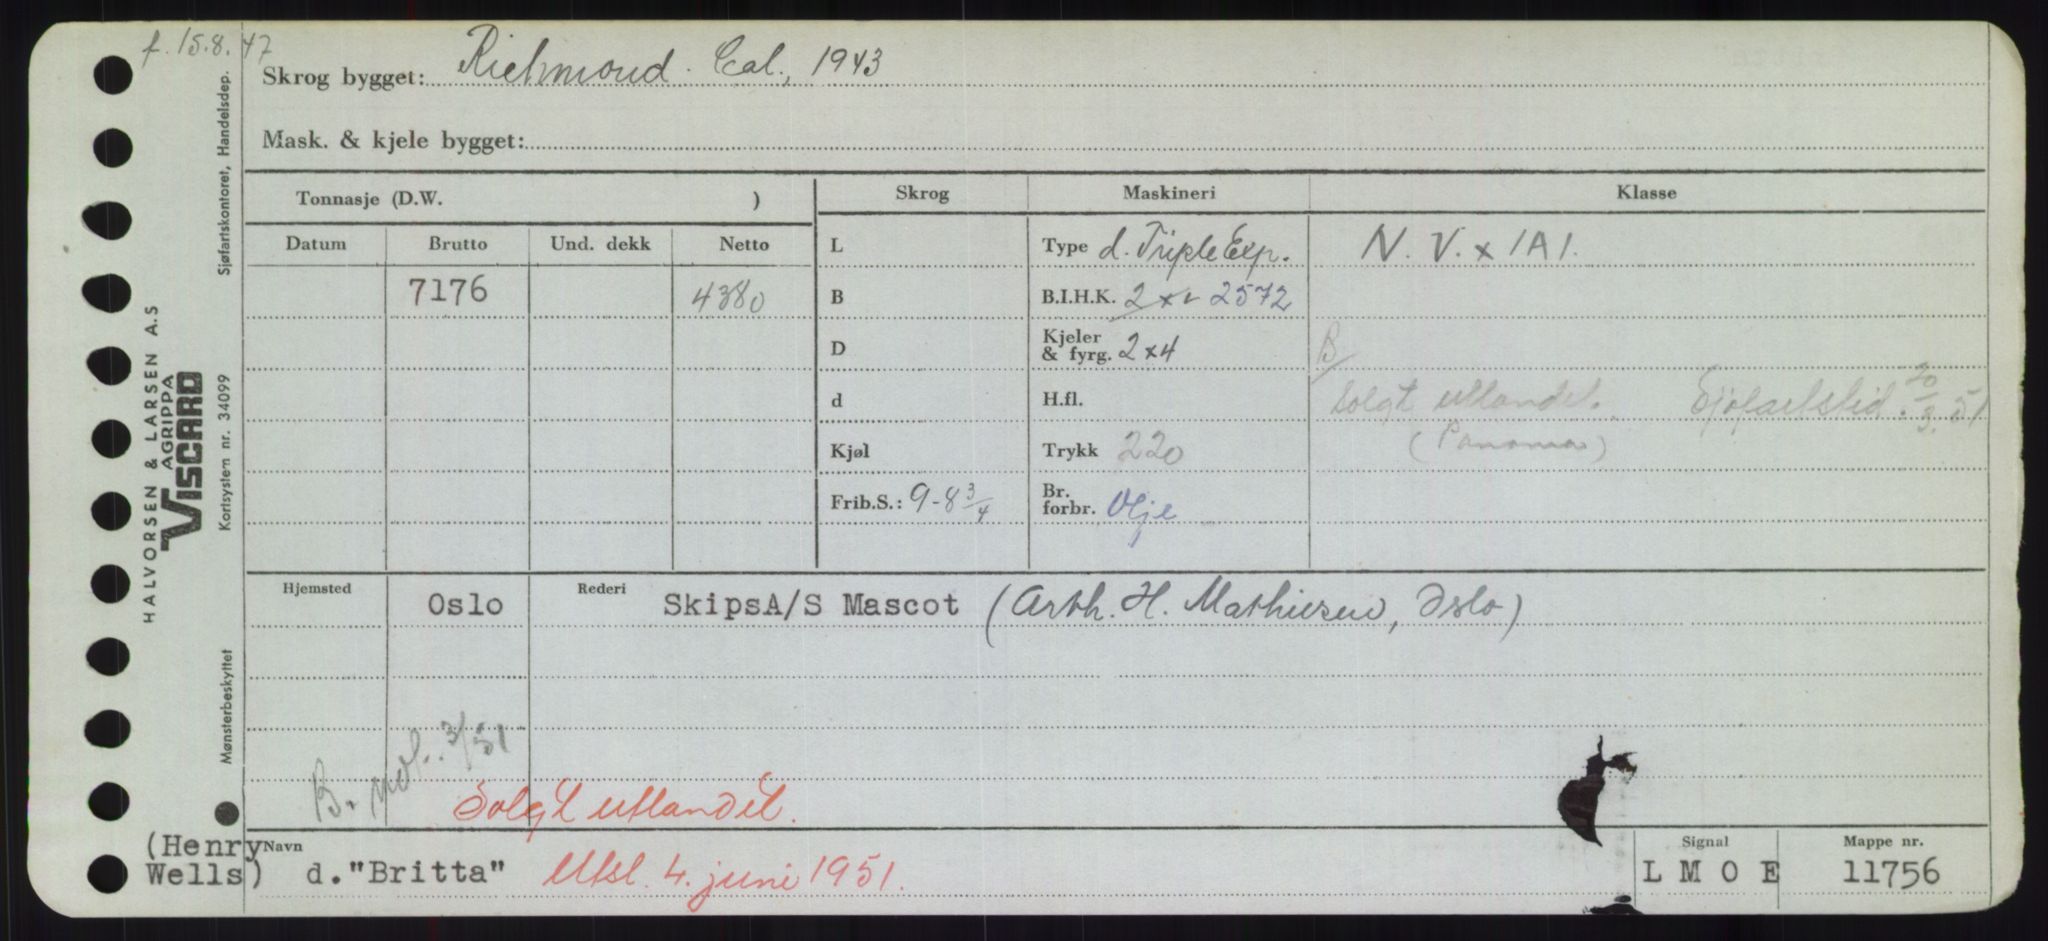 f. 15.8.47
Skrog bygget: Richmond. Cal., 1943
Mask. & kjele bygget:
Tonnasje (D.W. )
Skrog
Maskineri
Klasse
Datum Brutto Und. dekk Netto
L
Type d. Triple Exp.
N. V. x 1A1.
7176
4380
B
B.I.H.K. 2 x 2572
D
Kjeler
& fyrg. 2x4
B
d
H.fl.
Solgt utlandet. Sjøfartstid. 20/3.51
Kjøl
Trykk 220
(Panama)
Frib.S.: 9-8 3/4
Br.
forbr. Olje
Hjemsted
Oslo
Rederi
SkipsA/S Mascot (Arth. H. Mathiesen, Oslo)
B. not. 3/51
Solgt utlandet.
(Henry
Wells)
Navn
d."Britta" Utsl. 4. juni 1951.
Signal
L M O E
Mappe nr.
11756
HALVORSEN & LARSEN A.S
AGRIPPA
VISCARD
Sjøfartskontoret, Handelsdep.
Kortsystem nr. 34099
Mønsterbeskyttet